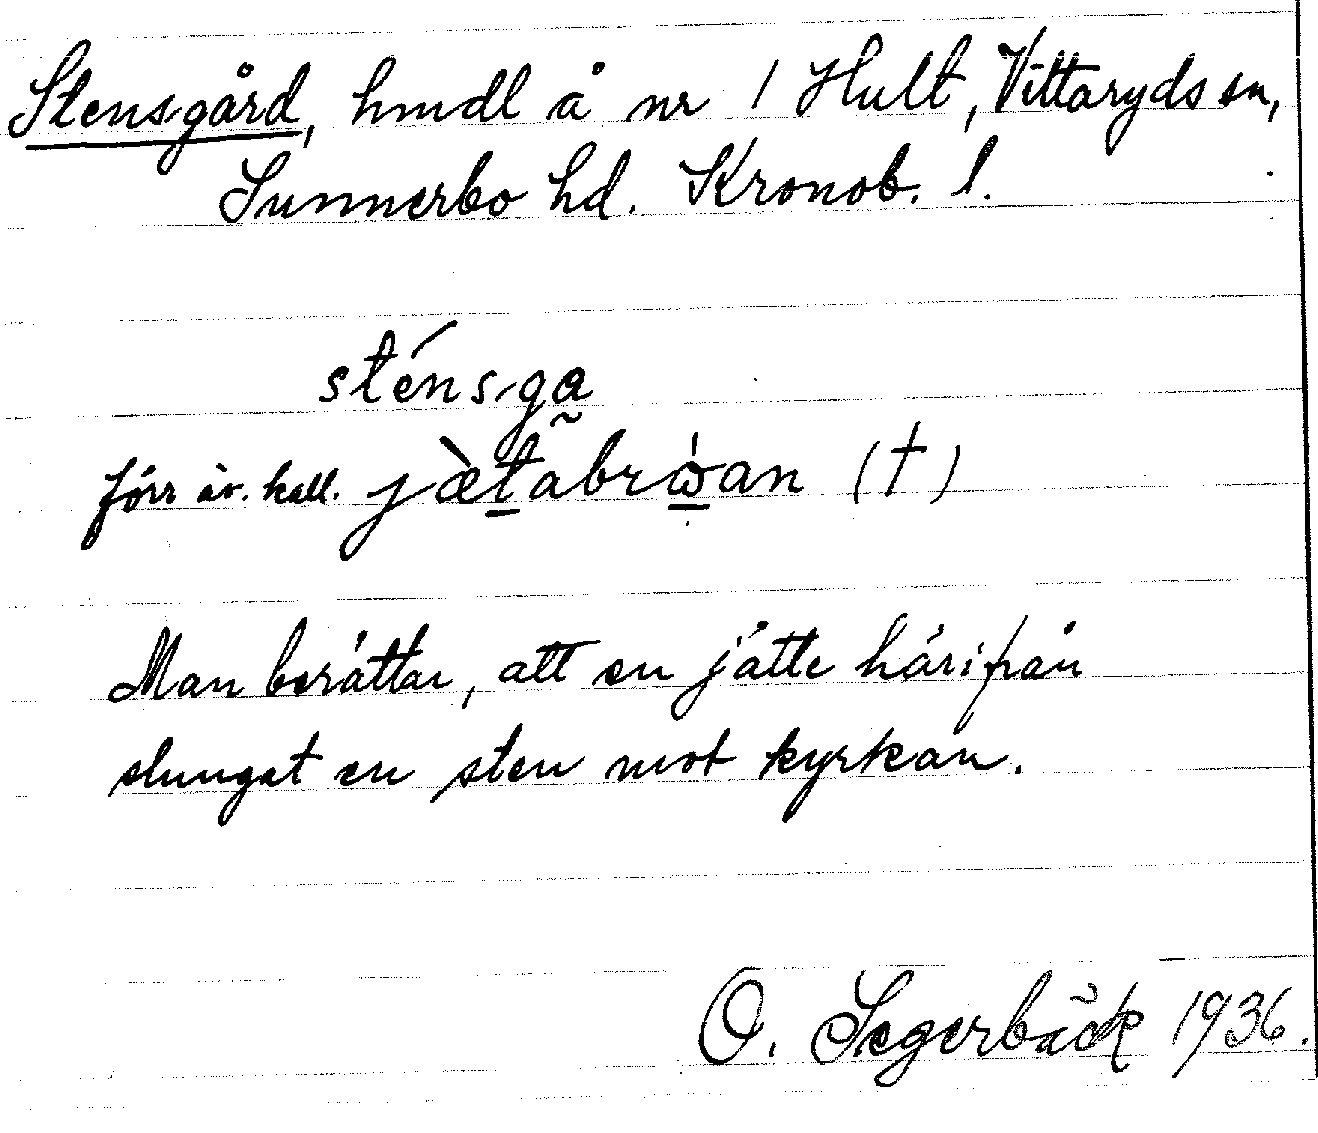 Stensgård, hmdl å nr 1 Hult, Vittaryds sn,
Sunnerbo hd. Kronob. l.
sténsga
förr äv. kall. jætabrωan (†)
Man berättar, att en jätte härifrån
slungat en sten mot kyrkan.
O. Segerbäck 1936.